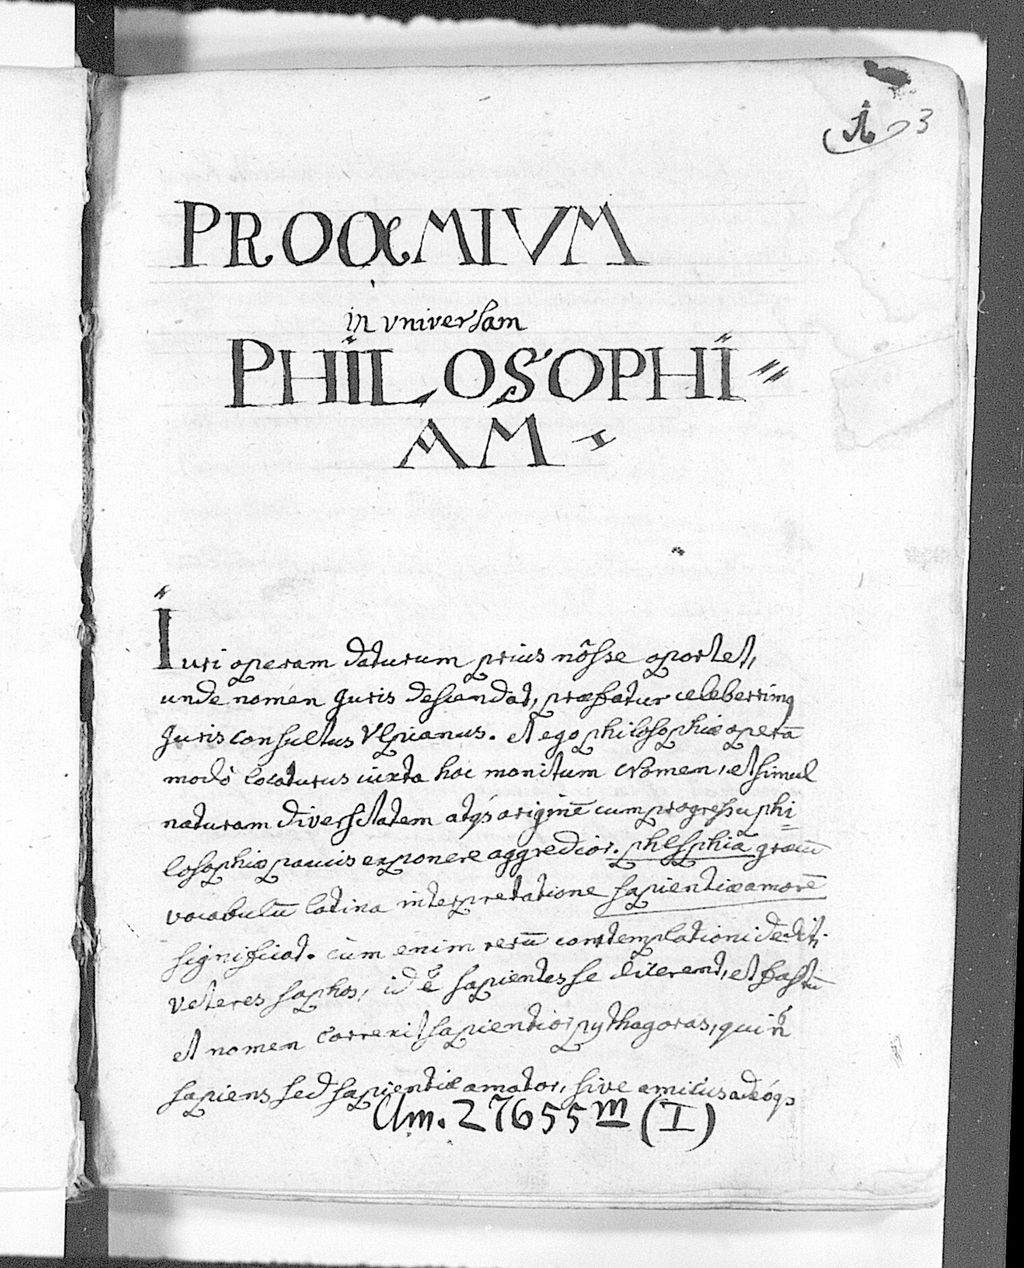 A 3
PROŒMIVM
in vniversam
PHILOSOPHI=
AM.
Iuri operam daturum prius nôsse oportet,
unde nomen Juris descendat, præfatur celeberrimq
Juris consultus Vlpianus. et ego philosophiæ operā
modò locaturus iuxta hoc monitum Nomen, et simul
naturam diversitatem atq; originē cum progressu phi=
losophiæ paucis exponere aggredior. phlsphia græcū
vocabulū latina interpretatione sapientiæ amorē
significat. cùm enim rerū contemplationi dediti
veteres sophos, id ē sapientes se dicerent, et fastū
et nomen correxit sapientior pythagoras, qui n̄
sapiens sed sapientiæ amator, sive amicus adeóq;
Clm. 27655 m (I)